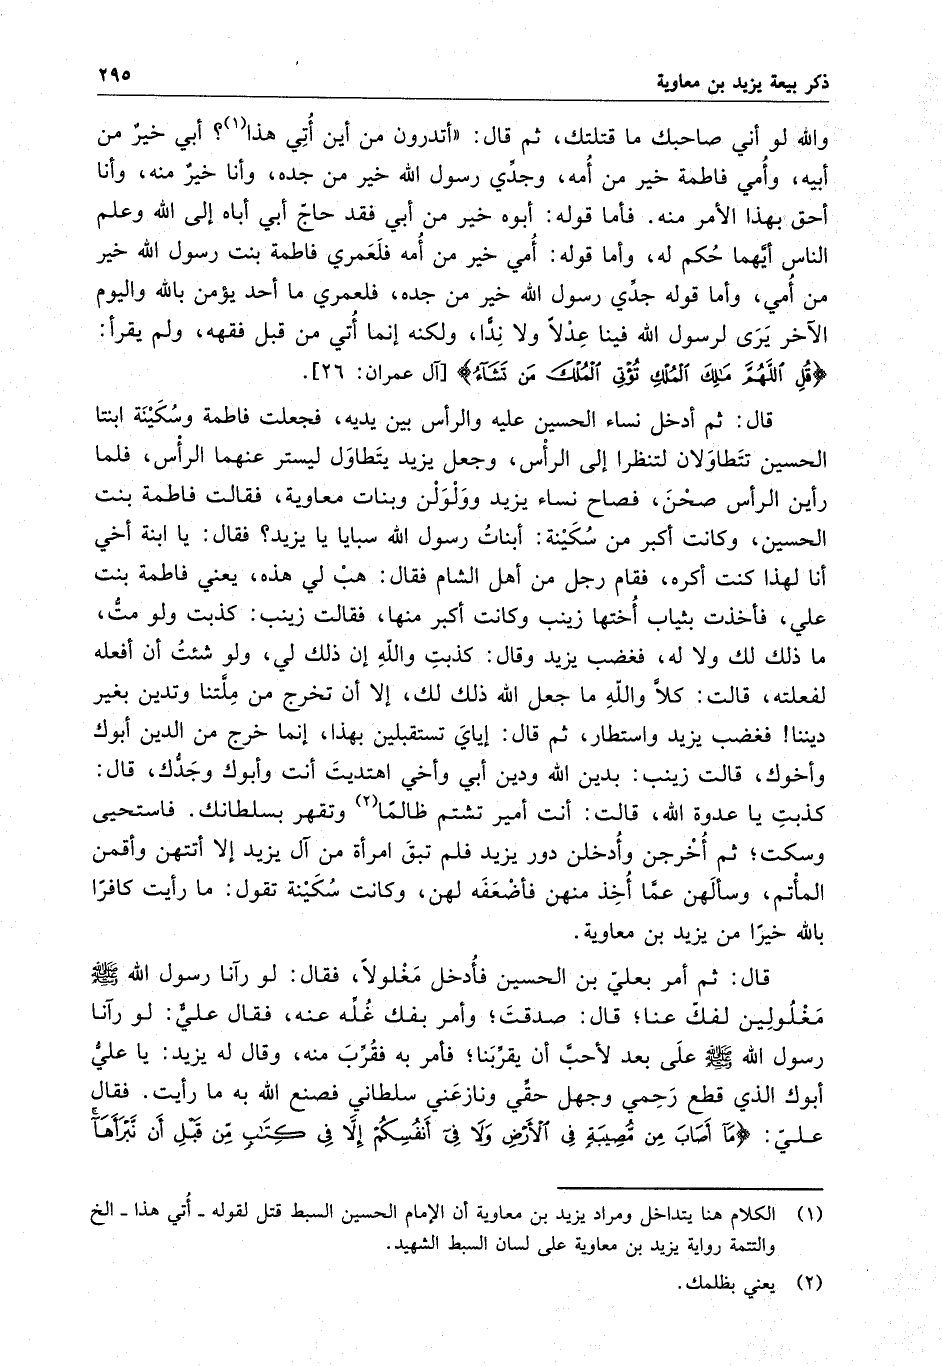 ذكر بيعة يزيد بن معاوية
٢٩٥
والله لو أني صاحبك ما قتلتك، ثم قال: «أتدرون من أين أُتِي هذا(١)؟ أبي خيرٌ من
أبيه، وأُمي فاطمة خير من أُمه، وجدِّي رسول الله خير من جده، وأنا خيرٌ منه، وأنا
أحق بهذا الأمر منه. فأما قوله: أبوه خير من أبي فقد حاجّ أبي أباه إلى الله وعلم
الناس أيُّهما حُكم له، وأما قوله: أُمي خير من أُمه فلَعَمري فاطمة بنت رسول الله خير
من أُمي، وأما قوله جدِّي رسول الله خير من جده، فلعمري ما أحد يؤمن بالله واليوم
الآخر يَرَى لرسول الله فينا عِدْلاً ولا نِدًّا، ولكنه إنما أُتي من قبل فقهه، ولم يقرأ:
﴿قُلِ ٱللَّهُمَّ مَٰلِكَ ٱلْمُلْكِ تُؤْتِي ٱلْمُلْكَ مَن تَشَآءُ﴾ [آل عمران: ٢٦].
قال: ثم أدخل نساء الحسين عليه والرأس بين يديه، فجعلت فاطمة وسُكَيْنَة ابنتا
الحسين تتَطاوَلان لتنظرا إلى الرأْس، وجعل يزيد يتَطاوَل ليستر عنهما الرأْس، فلما
رأين الرأس صحْنَ، فصاح نساء يزيد ووَلْوَلْن وبنات معاوية، فقالت فاطمة بنت
الحسين، وكانت أكبر من سُكَيْنة: أبناتُ رسول الله سبايا يا يزيد؟ فقال: يا ابنة أخي
أنا لهذا كنت أكره، فقام رجل من أهل الشام فقال: هبْ لي هذه، يعني فاطمة بنت
علي، فأخذت بثياب أُختها زينب وكانت أكبر منها، فقالت زينب: كذبت ولو متُّ،
ما ذلك لك ولا له، فغضب يزيد وقال: كذبتِ واللهِ إن ذلك لي، ولو شئتُ أن أفعله
لفعلته، قالت: كلاَّ واللهِ ما جعل الله ذلك لك، إلا أن تخرج من مِلَّتنا وتدين بغير
ديننا! فغضب يزيد واستطار، ثم قال: إيايَ تستقبلين بهذا، إنما خرج من الدين أبوك
وأخوك، قالت زينب: بدين الله ودين أبي وأخي اهتديتَ أنت وأبوك وجَدُّك، قال:
كذبتِ يا عدوة الله، قالت: أنت أمير تشتم ظالمًا(٢) وتقهر بسلطانك. فاستحيى
وسكت؛ ثم أُخْرجن وأُدخلن دور يزيد فلم تبقَ امرأة من آل يزيد إلا أتتهن وأقمن
المأْتم، وسألَهن عمَّا أُخِذ منهن فأضْعَفَه لهن، وكانت سُكَيْنة تقول: ما رأيت كافرًا
بالله خيرًا من يزيد بن معاوية.
قال: ثم أمر بعليّ بن الحسين فأُدخل مَغْلولاً، فقال: لو رآنا رسول الله ﷺ
مَغْلُولِين لفكّ عنا؛ قال: صدقتَ؛ وأمر بفك غُلِّه عنه، فقال عليٌّ: لو رآنا
رسول الله ﷺ علَى بعد لأحبَّ أن يقرِّبَنا؛ فأمر به فقُرِّبَ منه، وقال له يزيد: يا عليُّ
أبوك الذي قطع رَحِمي وجهل حقِّي ونازعَني سلطاني فصنع الله به ما رأيت. فقال
عليّ: ﴿مَآ أَصَابَ مِن مُّصِيبَةٍ فِي ٱلْأَرْضِ وَلَا فِىٓ أَنفُسِكُمْ إِلَّا فِي كِتَٰبٍ مِّن قَبْلِ أَن نَّبْرَأَهَآ
(١) الكلام هنا يتداخل ومراد يزيد بن معاوية أن الإمام الحسين السبط قتل لقوله ـ أُتي هذا ـ الخ
والتتمة رواية يزيد بن معاوية على لسان السبط الشهيد.
(٢) يعني بظلمك.